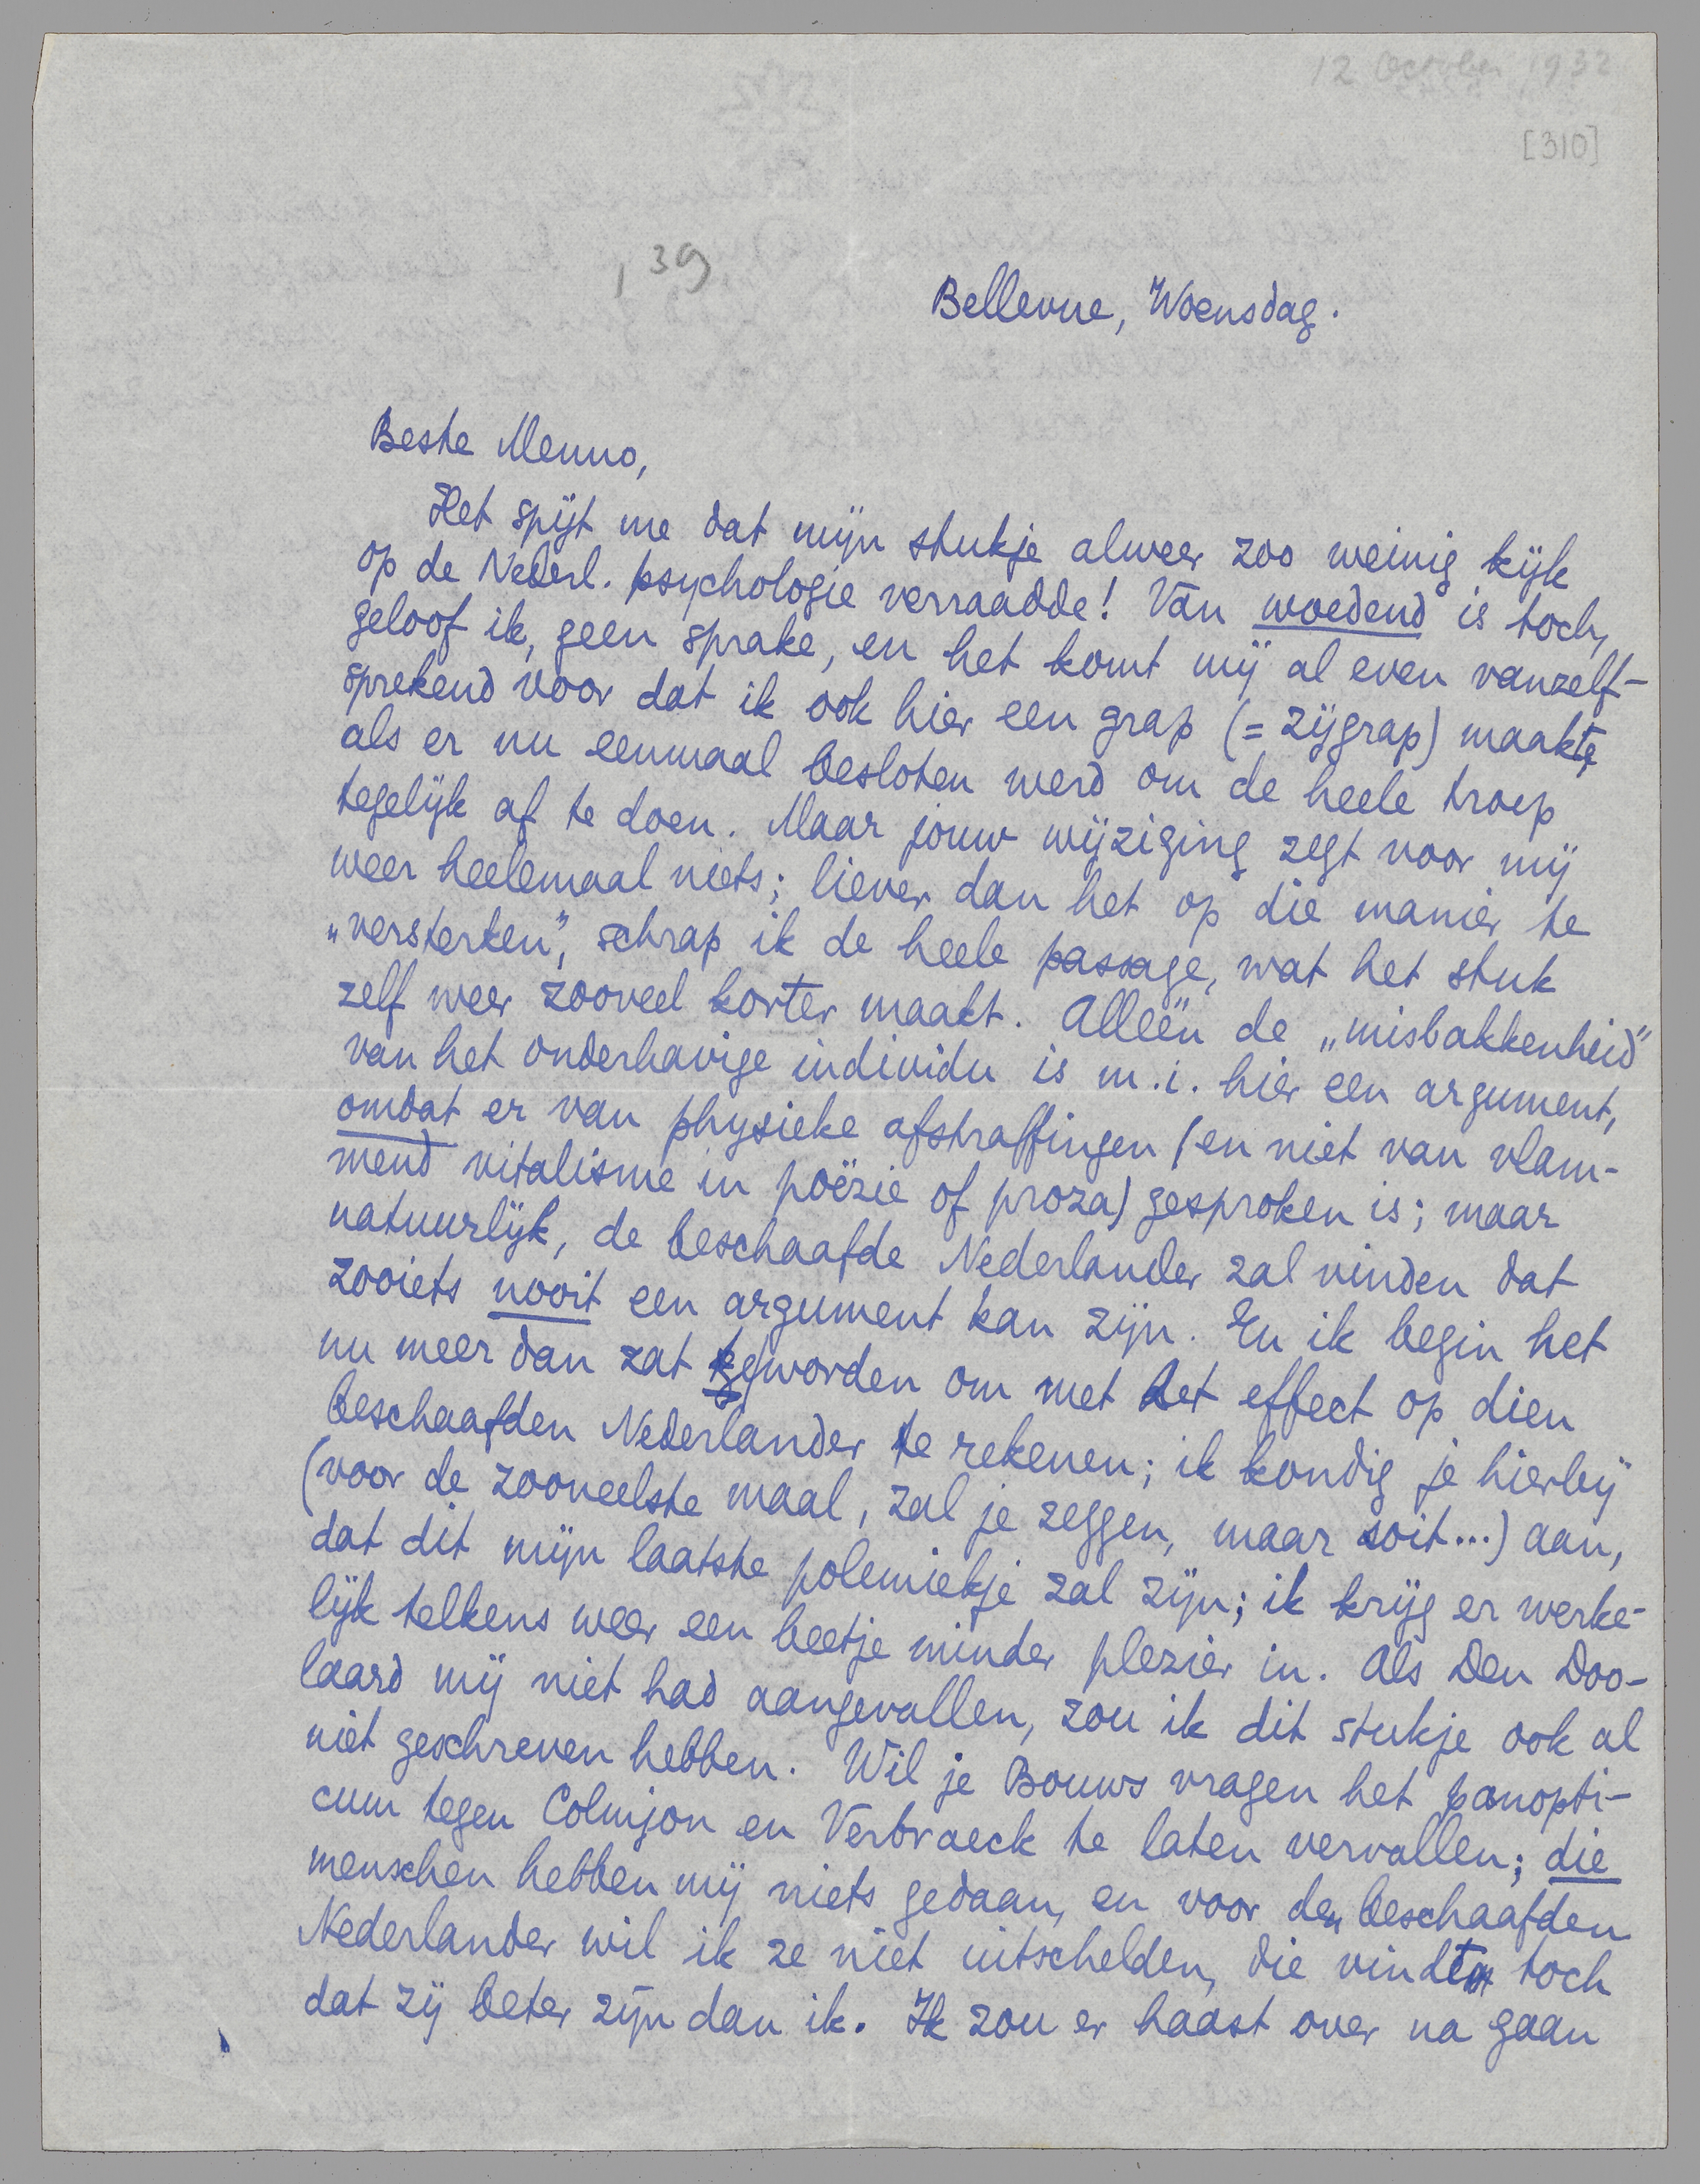 12 October 1932
[310]
, 39
Bellevue, Woensdag.
Beste Menno,
Het spijt me dat mijn stukje alweer zoo weinig kijk
op de Nederl. psychologie verraadde! Van woedend is toch,
geloof ik, geen sprake, en het komt mij al even vanzelf-
sprekend voor dat ik ook hier een grap (= zijgrap) maakte,
als er nu eenmaal besloten werd om de heele troep
tegelijk af te doen. Maar jouw wijziging zegt voor mij
weer heelemaal niets; liever dan het op die manier te
„versterken”, schrap ik de heele passage, wat het stuk
zelf weer zooveel korter maakt. Alleen de „misbakkenheid”
van het onderhavige individu is m.i. hier een argument,
omdat er van physieke afstraffingen (en niet van vlam-
mend vitalisme in poëzie of proza) gesproken is; maar
natuurlijk, de beschaafde Nederlander zal vinden dat
zooiets nooit een argument kan zijn. En ik begin het
nu meer dan zat te worden om met het effect op dien
beschaafden Nederlander te rekenen; ik kondig je hierbij
(voor de zooveelste maal, zal je zeggen, maar soit...) aan,
dat dit mijn laatste polemiekje zal zijn; ik krijg er werke-
lijk telkens weer een beetje minder plezier in. Als Den Doo-
laard mij niet had aangevallen, zou ik dit stukje ook al
niet geschreven hebben. Wil je Bouws vragen het panopti-
cum tegen Colmjon en Verbraeck te laten vervallen; die
menschen hebben mij niets gedaan, en voor den beschaafden
Nederlander wil ik ze niet uitschelden, die vindt toch
dat zij beter zijn dan ik. Ik zou er haast over na gaan